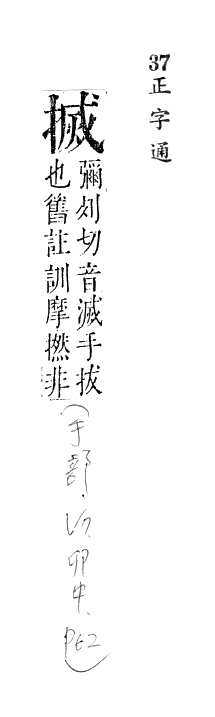 37正字通
搣
彌列切音滅手拔
也舊註訓摩撚非
(手部.卯中.P62)